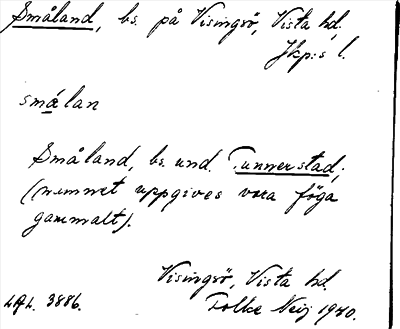 Småland, bs. på Visingsö, Vista hd,
Jkp:s l.
smålan
Småland, bs. und. Tunnerstad;
(namnet uppgives vara föga
gammalt).
Visingsö, Vista hd.
LAL. 3886.
Folke Neij 1940.